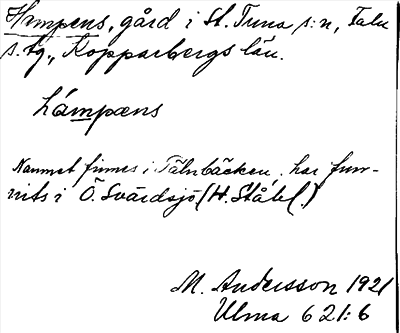 Hampens, gård i St. Tuna s:n, Falu
s. tg., Kopparbergs län.
hámpæns
Namnet finnes i Tälnbäcken, har fun-
nits i Ö. Svärdsjö (H. Ståhl.)
M. Andersson 1921
Ulma 621:6